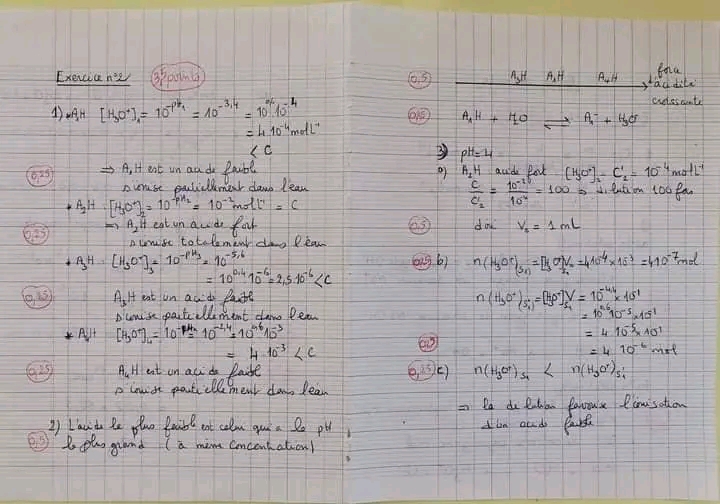 Exercice n°2 3,5 points
1) * A₁H [H₃O⁺]₁ = 10^-pH₁ = 10^-3,4 = 10^0,6 10^-4
= 4 10^-4 mol L^-1
< C
0,25 ⇒ A₁H est un acide faible
s'ionise partiellement dans l'eau
* A₂H : [H₃O⁺]₂ = 10^-pH₂ = 10^-2 mol L^-1 = C
0,25 ⇒ A₂H est un acide fort
s'ionise totalement dans l'eau
* A₃H : [H₃O⁺]₃ = 10^-pH₃ = 10^-5,6
= 10^0,4 10^-6 = 2,5 10^-6 < C
0,25 A₃H est un acide faible
s'ionise partiellement dans l'eau
* A₄H [H₃O⁺]₄ = 10^-pH₄ = 10^-2,4 = 10^0,6 10^-3
= 4 10^-3 < C
0,25 A₄H est un acide faible
s'ionise partiellement dans l'eau
2) L'acide le plus faible est celui qui a le pH
0,5 le plus grand (à même concentration)
0,5 A₃H A₁H A₄H force
d'acidité
croissante
A₁H + H₂O ⇌ A₁⁻ + H₃O⁺
3) pH = 4
a) A₂H acide fort : [H₃O⁺]₂ = C'₂ = 10^-4 mol L^-1
C/C'₂ = = 100 ⇒ dilution 100 fois
0,5 d'où V₂ = 1 mL
0,25 b) n(H₃O⁺) = [H₃O⁺] = 4 10^-4 × 10^-3 = 4 10^-7 mol
n(H₃O⁺) = [H₃O⁺]V = 10^-4,4 × 10^-1
= 10^0,6 10^-5 × 10^-1
= 4 10^-5 × 10^-1
= 4 10^-6 mol
0,25 c) n(H₃O⁺) < n(H₃O⁺)
⇒ la dilution favorise l'ionisation
d'un acide faible